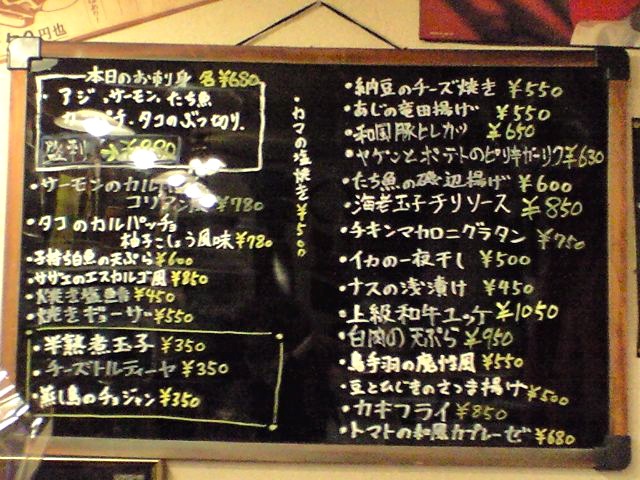 本日のお刺身 各¥680
・アジ、サーモン、たち魚
タコのぶつ切り.
・サーモンのカル
コリアン ¥780
・タコのカルパッチョ
柚子こしょう風味 ¥780
・子持ち白魚の天ぷら ¥600
・サザエのエスカルゴ風 ¥850
・焼き塩鯖 ¥450
・焼きギョーザ ¥550
・半熟煮玉子 ¥350
・チーズトルティーヤ ¥350
・蒸し鳥のチョジャン ¥350
・カマの塩焼き ¥500
・納豆のチーズ焼き ¥550
・あじの竜田揚げ ¥550
・和国豚ヒレカツ ¥650
・ヤゲンとポテトのピリ辛ガーリック ¥630
・たち魚の磯辺揚げ ¥600
・海老玉子チリソース ¥850
・チキンマカロニグラタン ¥750
・イカの一夜干し ¥500
・ナスの浅漬け ¥450
・上級和牛ユッケ ¥1050
・白肉の天ぷら ¥950
・鳥手羽の魔性風 ¥550
・豆とひじきのさつま揚げ ¥500
・カキフライ ¥850
・トマトの和風カプレーゼ ¥680